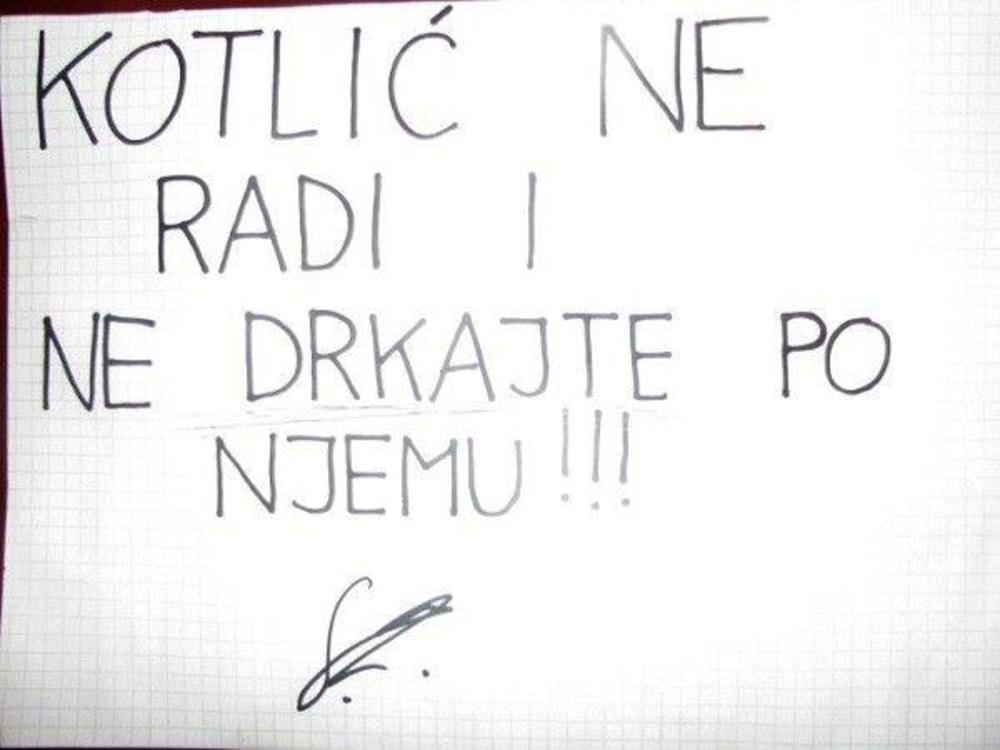 KOTLIĆ NE
RADI I
NE DRKAJTE PO
NJEMU!!!